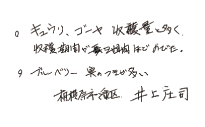 ○ キュウリ、ゴーヤ 収穫量も多く、
収穫期間が 二ヶ月間ほどのびた。
○ ブルーベリー 実のつきが多い
相模原市 緑区 井上庄司